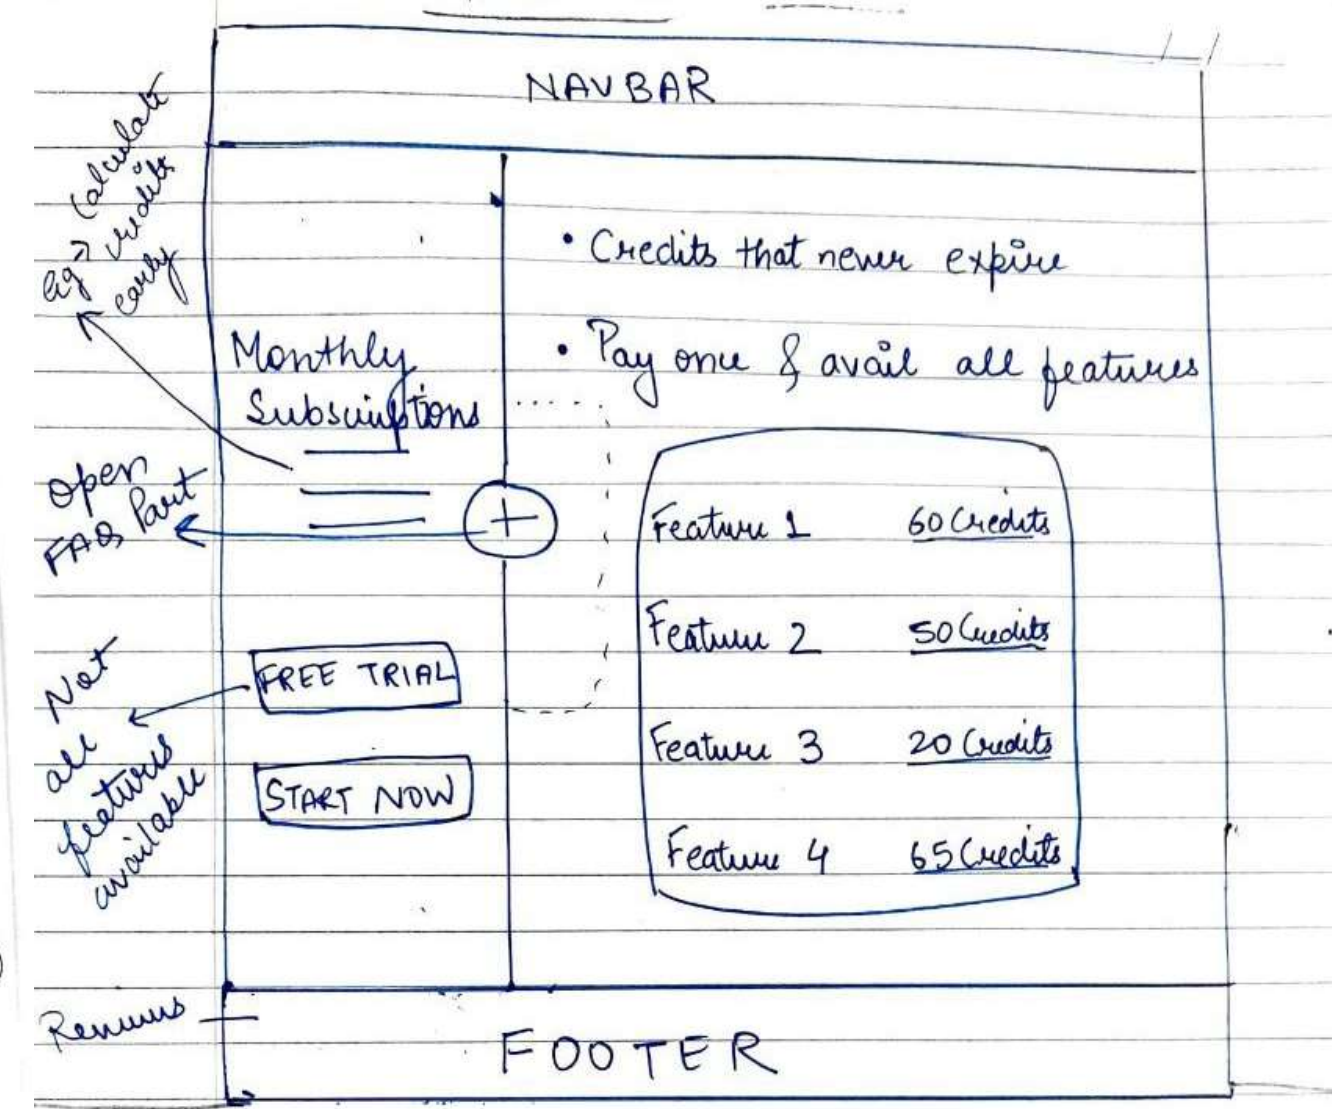 NAVBAR
eg → Calculate
credits
early
• Credits that never expire
• Pay once & avail all features
Monthly
Subscriptions
Open
FAQ Part
+
Feature 1 60 Credits
Feature 2 50 Credits
Feature 3 20 Credits
Feature 4 65 Credits
FREE TRIAL
START NOW
Not
all
features
available
FOOTER